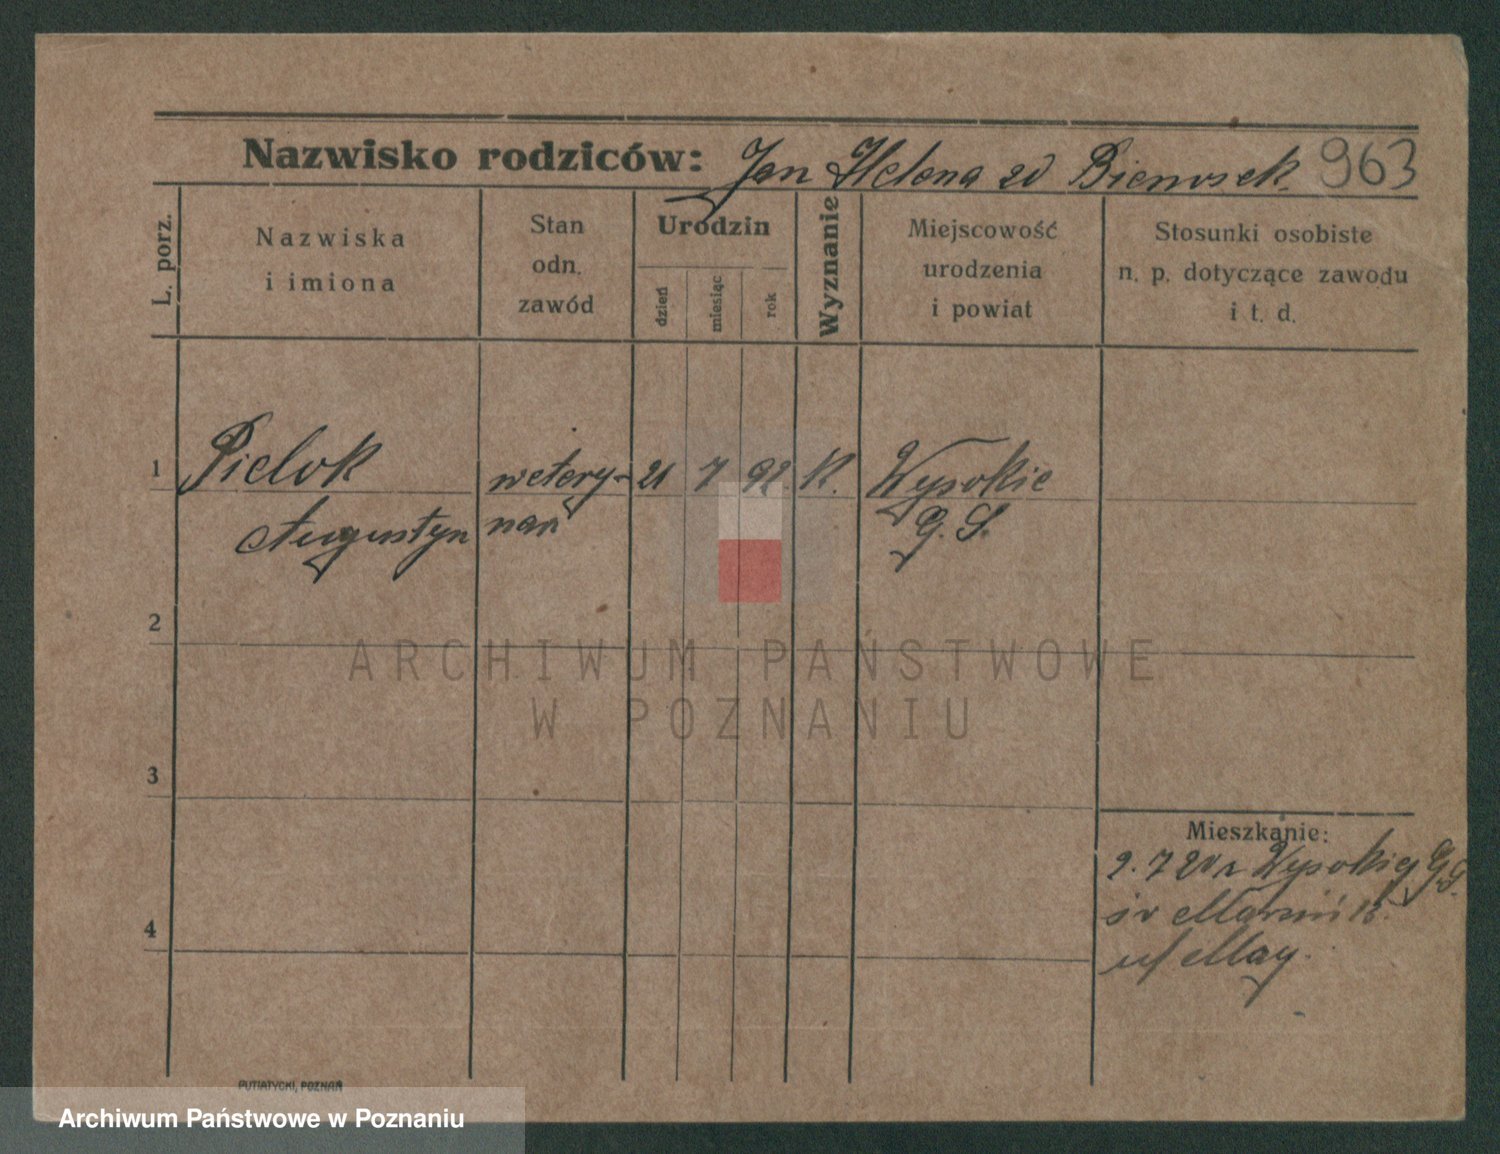 Nazwisko rodziców: Jan Helena zd Bienosek. 963
L. porz.
Nazwiska
i imiona
Stan
odn.
zawód
Urodzin
dzień
miesiąc
rok
Wyznanie
Miejscowość
urodzenia
i powiat
Stosunki osobiste
n. p. dotyczące zawodu
i t. d.
1 Pielok wetery- 21 7 92. K. Wysokie
Augustyn nar G. S.
2
3
4
Mieszkanie:
2. 7 20 z Wysokiej G. S.
św Marcin
u/ May.
PUTIATYCKI, POZNAŃ
ARCHIWUM PAŃSTWOWE
W POZNANIU
Archiwum Państwowe w Poznaniu